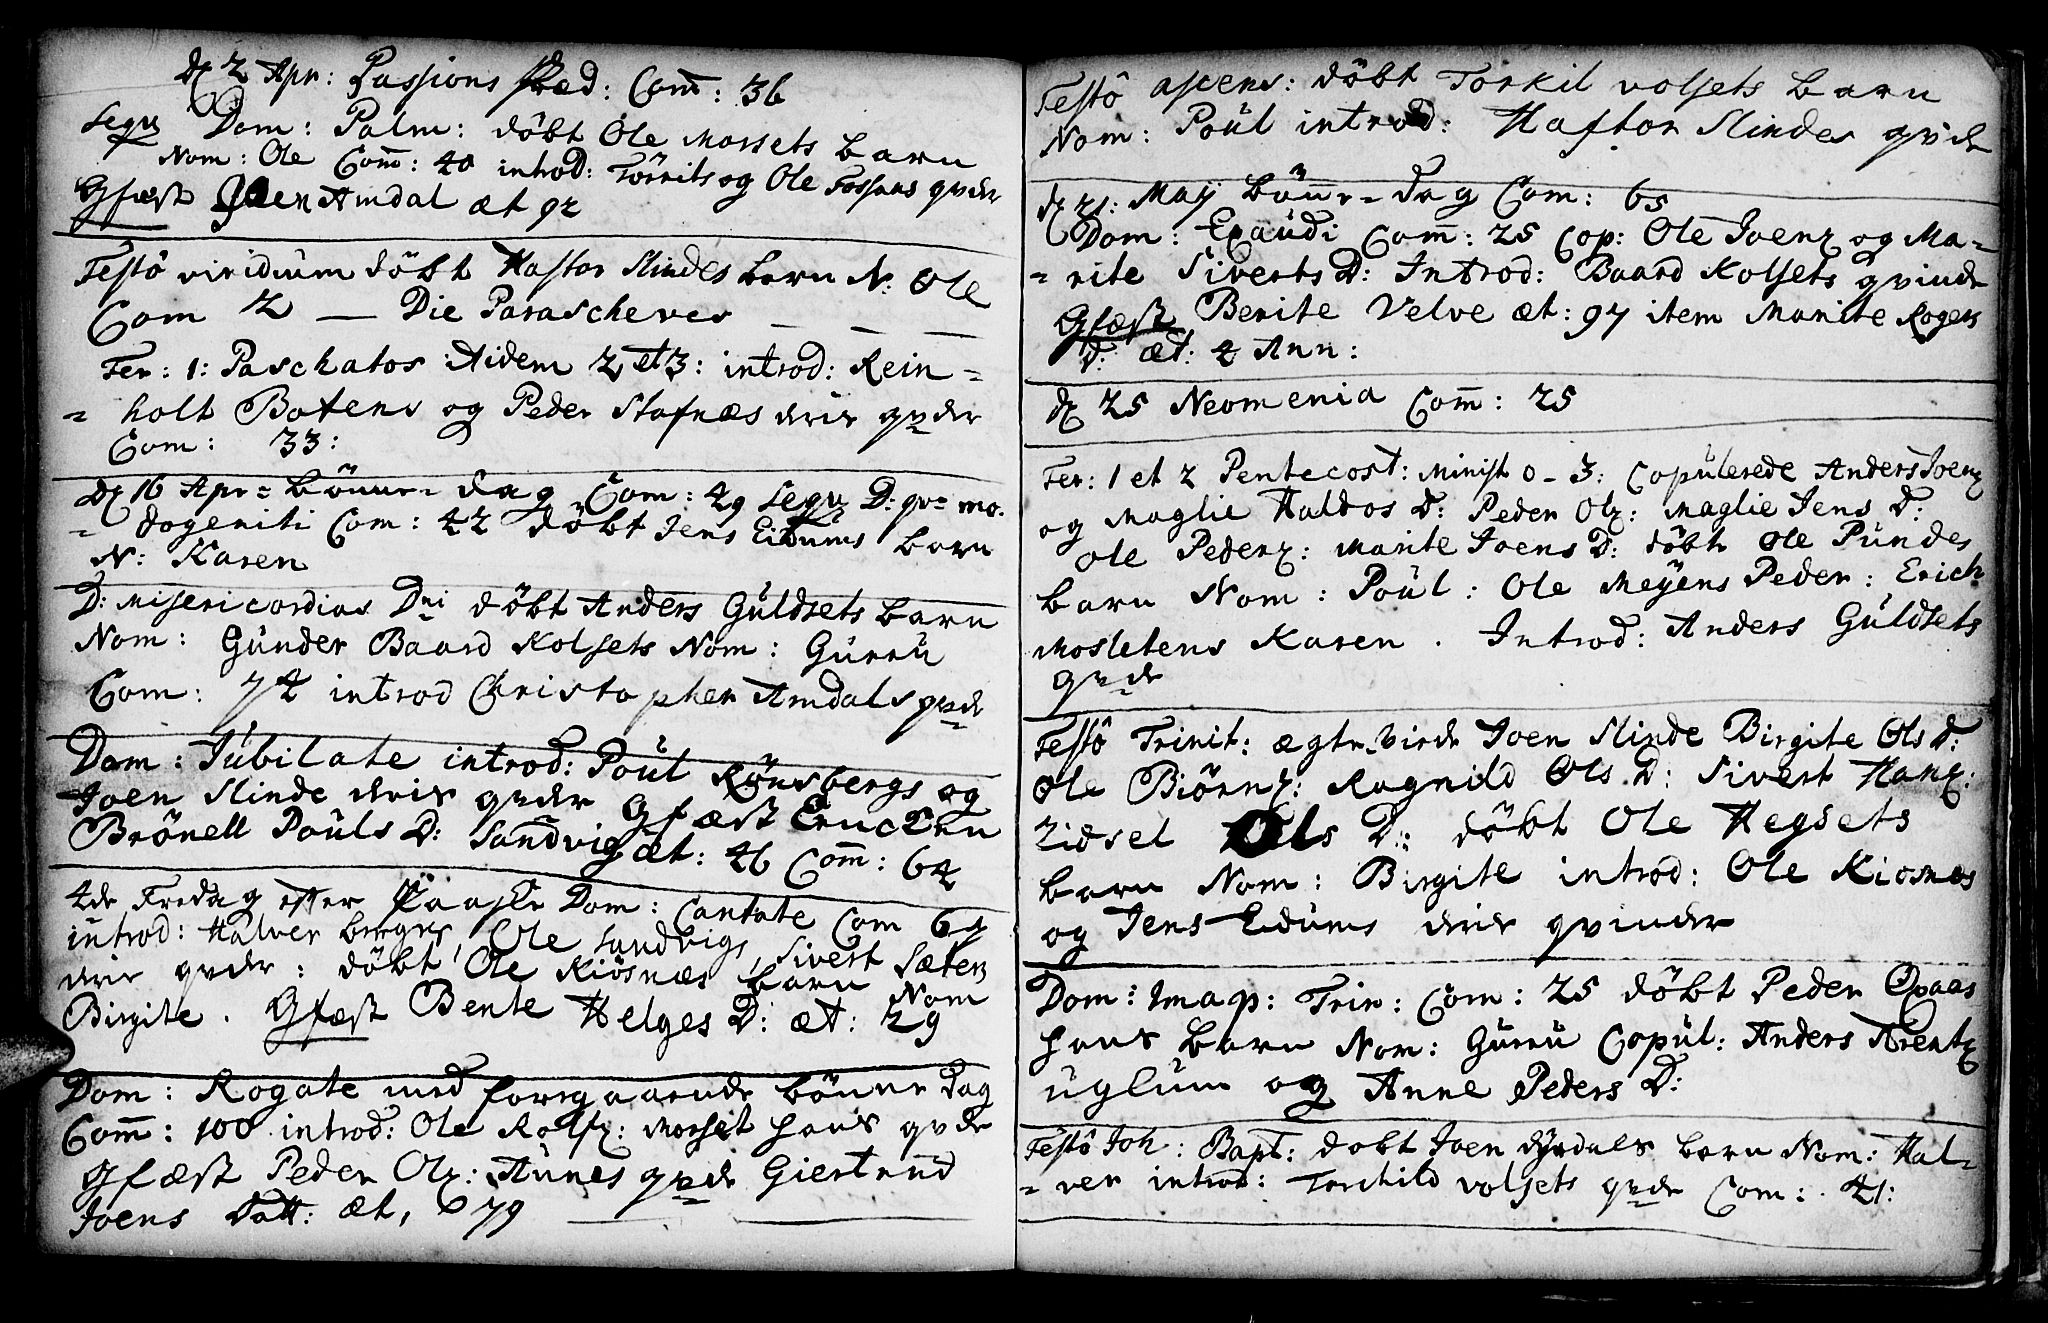 d 2 Apr: Passions Præd: Com̄: 36
Seqv Dom: Palm: döbt Ole Morsets barn
Nom: Ole Com̄: 40 introd: Törrits og Ole Fossens qvdr
Gfæst Amdal æt 92
Festô viridium döbt Haftor Slindes barn N: Ole
Com 2 — Die Parascheves — — —
Fer: 1: Paschatos itidem 2 et 3: introd: Rein=
= holt Botens og Peder Stafnæs deris qvdr
Com: 33:
d 16 Apr= bönne= dag Com: 49 Seqv D: qva= mo.
= dogeniti Com: 42 döbt Jens Eidums barn
N: Karen
D: Misericordias Dni döbt Anders Guldsets barn
Nom: Gunder Baard Kolsets Nom: Gurru
Com: 74 introd Christopher Amdals qvde
Dom: Jubilate introd: Poül Rönsbergs og
Joen Slinde deris qvdr Gfæst Encken
Brönell Pouls D: Sandvig æt: 46 Com̄: 64
4de Fredag efter Paaske Dom: Cantate Com 69
introd: Halver berges, Ole Sandvigs, Sivert Sæters
deris qvdr: döbt Ole Kiösnæs barn Nom
Birgite. Gfæst Bente Helges D: æt: 29
Dom: Rogate med foregaaende bönne dag
Com̄: 100 introd: Ole Rolfz: Morset hans qvde
Gfæst Peder Olz: Aunes qvde Giertrud
Joens Datt: æt, 79
Festô ascens: döbt Torkil volsets barn
Nom: Poül introd: Haftor Slindes qvde
d 21: May bönne= dag Com: 65
Dom: Exaudi Com̄: 25 Cop: Ole Joenz og Ma=
= rite Siverts D: Introd: Baard Kolsets qvinde
Gfæst Berite Velve æt: 97 item Marite Rogers
D: æt: 4 Ann:
d 25 Neomenia Com̄: 25
Fer: 1 et 2 Pentecost: Minist 0 - 3: Copulerede Anders Joenz
og Maglie Haldos D: Peder Olz: Maglie Jens D:
Ole Pederz: Marite Joens D: döbt Ole Pundes
barn Nom: Poül: Ole Meyens Peder: Erich
Mosletens Karen. Introd: Anders Guldsets
qvde
Festô Trinit: ægte-virde Joen Slinde Birgite Ols D:
Ole Biörnz: Ragnild Ols D: Sivert Hanz:
Zidsel Ols D: döbt Ole Hegsets
barn Nom: Birgite introd: Ole Kiosnæs
og Jens Edums deris qvinder
Dom: Imap: Trin: Com: 25 döbt Peder Opaas
hans barn Nom: Gurru Copul: Anders Arentz
Uglum og Anne Peders D:
Festô Joh: Bapt: döbt Joen dyrdals barn Nom: Hal=
= ver introd: Torchild volsets qvde Com: 41: